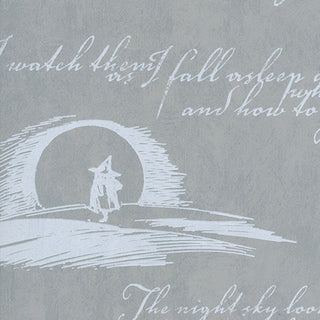 I watch them
as I fall asleep
and how to
The night sky loo